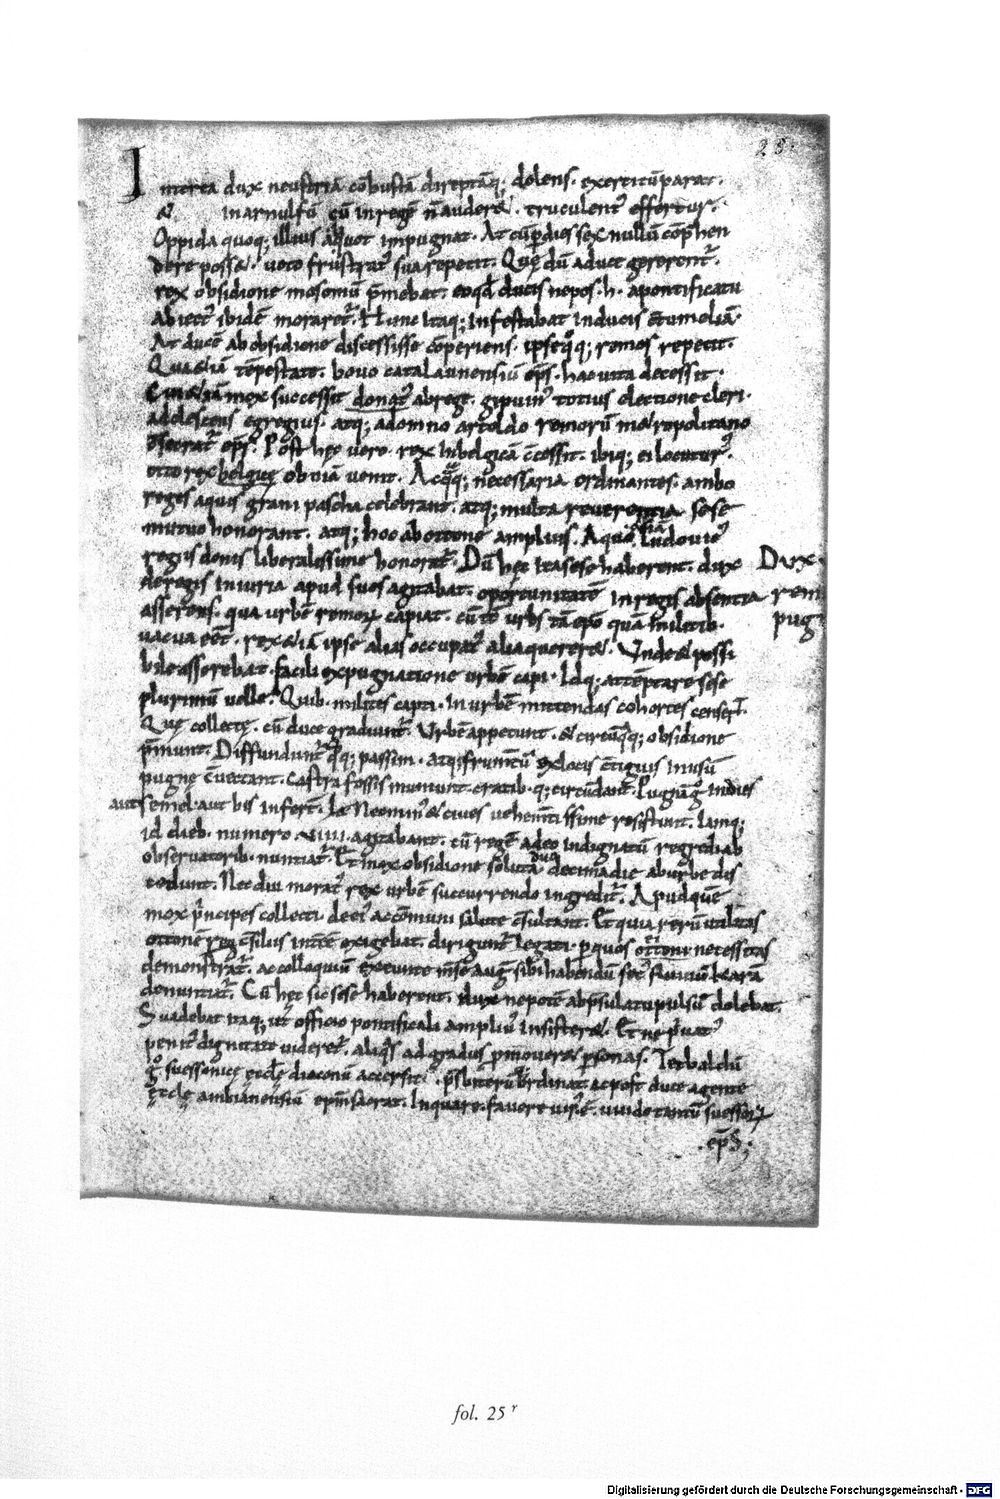 25.
Interea dux neustriā cōbustā direptāq; dolens. exercitū parat.
& in arnulfū cū in regē n̄ auder&. truculent᷒ effertur.
Oppida quoq; illius aliquot impugnat. At cū p dies sex nullū cōp̄hen
dere poss&. voto frustrat᷒ sua repetit. Quę dū adver gererent᷒.
rex obsidione mosomū p̄mebat. eo qd̄ ducis nepos .h. a pontificatu
abiect᷒ ibidē moraret᷒. Hunc itaq; infestabat in ducis c̄tumeliā.
At ducē ab obsidione discessisse cōperiens. ipse q°q; remos repetit.
Qua &iā tēpestate. bovo catalaunensiū ep̄s. hac vita decessit.
Cui &iā mox successit donat᷒ a rege. gipuin᷒ totius electione cleri.
adolescens egregius. atq; a domno artoldo remorū m&ropolitano
c̄secrat᷒ ep̄s. Post hęc vero. rex in belgicā c̄cessit. ibiq; ei locutur᷒.
otto rex belgicę obviā venit. Acq̄q; necessaria ordinantes. ambo
reges aquis grani pascha celebrant. atq; multa reverentia sese
mutuo honorant. atq; hoc ab ottone amplius. A quo &iā ludovic᷒
regiis donis liberalissime honorat᷒. Dū hęc ita sese haberent. dux
de regis iniuria apud suos agitabat. oportunitatē in regis absentia
asserens. qua urbē remoꝝ capiat. cū t̄c urbs tā ep̄o quā militib.
vacua eēt. rex &iā ipse alias occupat᷒ alia querer&. Unde & possi
bile asserebat. facili expugnatione urbē capi. Idq; attēptare sese
plurimū velle. Quib. milites capti. in urbē mittendas cohortes censer̄t.
Quę collectę. cū duce gradiunt᷒. Urbē appetunt. & circūq̄q; obsidione
p̄munt. Diffundunt᷒ q°q; passim. atq; frumtū ex locis c̄tiguis in usū
pugnę c̄vectant. Castra fossis muniunt. cratib.q; circūdant. Pugnaq; indies
aut semel. aut bis infert᷒. Nec min᷒ & cives vehemtissime resistunt. Iamq;
id dieb. numero .viiii. agitabant. cū regē adeo indignatū regredi ab
observatorib. nuntiat᷒. Et mox obsidione soluta duo decima die ab urbe dis
cedunt. Nec diu morat᷒ rex urbē succurrendo ingredit᷒. Apud quē
mox p̄ncipes collecti. de ei᷒ ac cōmuni salute c̄sultant. Et quia rerū utilitas
ottonē reg̅ c̄siliis intēē exigebat. dirigunt᷒ legati. p quos ottoni necessitas
demonstrat᷒. ac colloquiū exeunte mse aug̅. sibi habendū sec᷒ fluviū karā
denuntiat᷒. Cū hęc sic sese haberent. dux nepotē ab p̄sulatu pulsū dolebat.
Suadebat itaq; ut officio pontificali ampli᷒ insister&. Et ne p̄vat᷒
penit᷒ dignitate videret᷒. aliq̄s ad gradus p̄mover& psonas. Tetbaldū
g° suessonicę ęcclę diaconū accersit. p̄sbiterū ordinat. ac post duce agente
ęcclę ambianensiū ep̄m sacrat.
.ep̄s;
Dux.
rem
pug
fol. 25 r
Digitalisierung gefördert durch die Deutsche Forschungsgemeinschaft - DFG